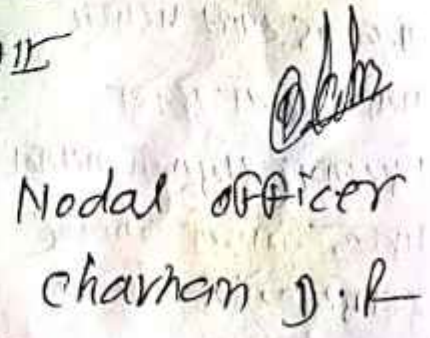 III
Nodal officer
Chavhan D.R